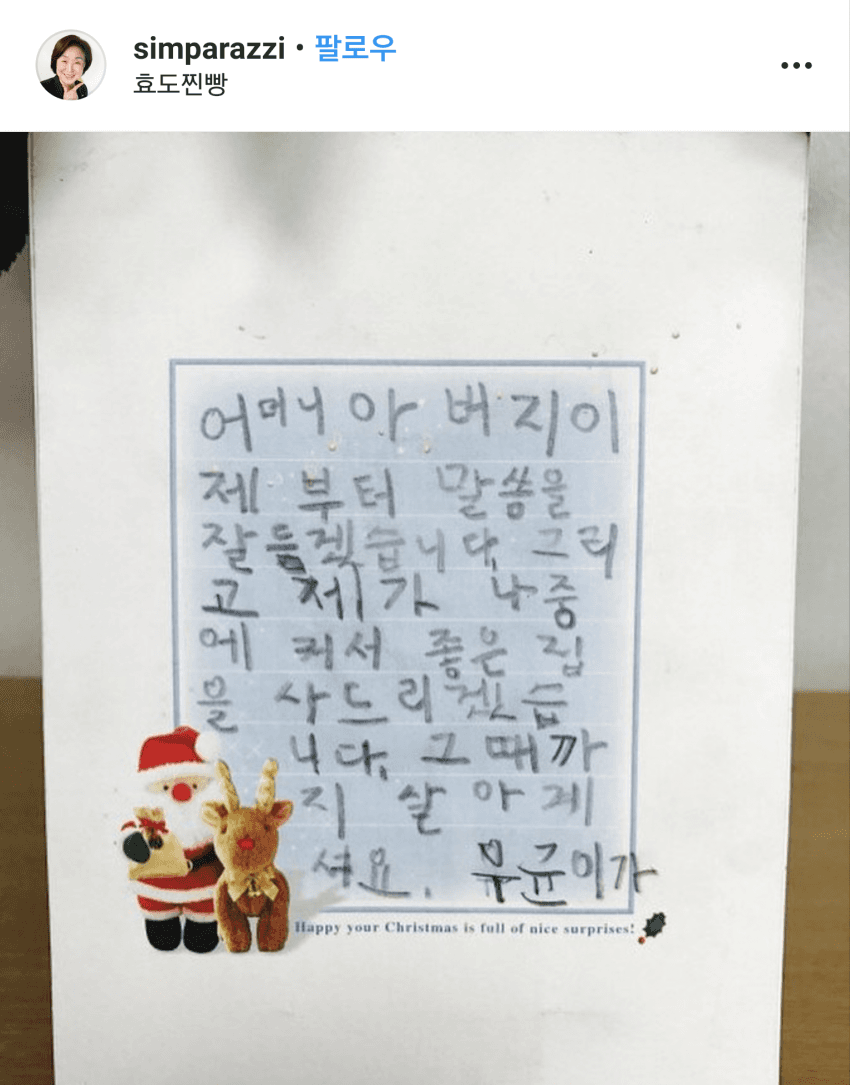 simparazzi • 팔로우
효도찐빵
어머니 아버지이
제 부터 말씀을
잘들겟습니다. 그리
고 제가 나중
에 커서 좋은 집
을 사드리겠습
니다. 그때까
지 살아게
셔요. 유균이가
Happy your Christmas is full of nice surprises!